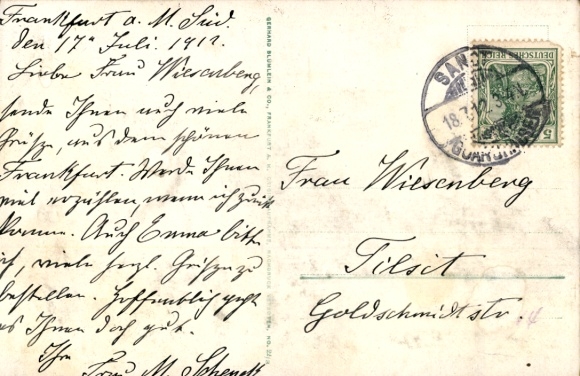 Frankfurt a. M. Süd.
den 17n Juli. 1912.
Liebe Frau Wiesenberg,
sende Ihnen auch viele
Grüße, aus dem schönen
Frankfurt. Werde Ihnen
viel erzählen, wenn ich zurück
komme. Auch Emma bittet
viele herzl. Grüße zu
bestellen. Hoffentlich geht
es Ihnen doch gut.
Ihre
Frau M. Schenk
GERHARD BLÜMLEIN & CO., FRANKFURT A. M.
DEUTSCHES REICH
5
18.7.12.
Frau Wiesenberg
Tilsit
Goldschmidtstr. 4